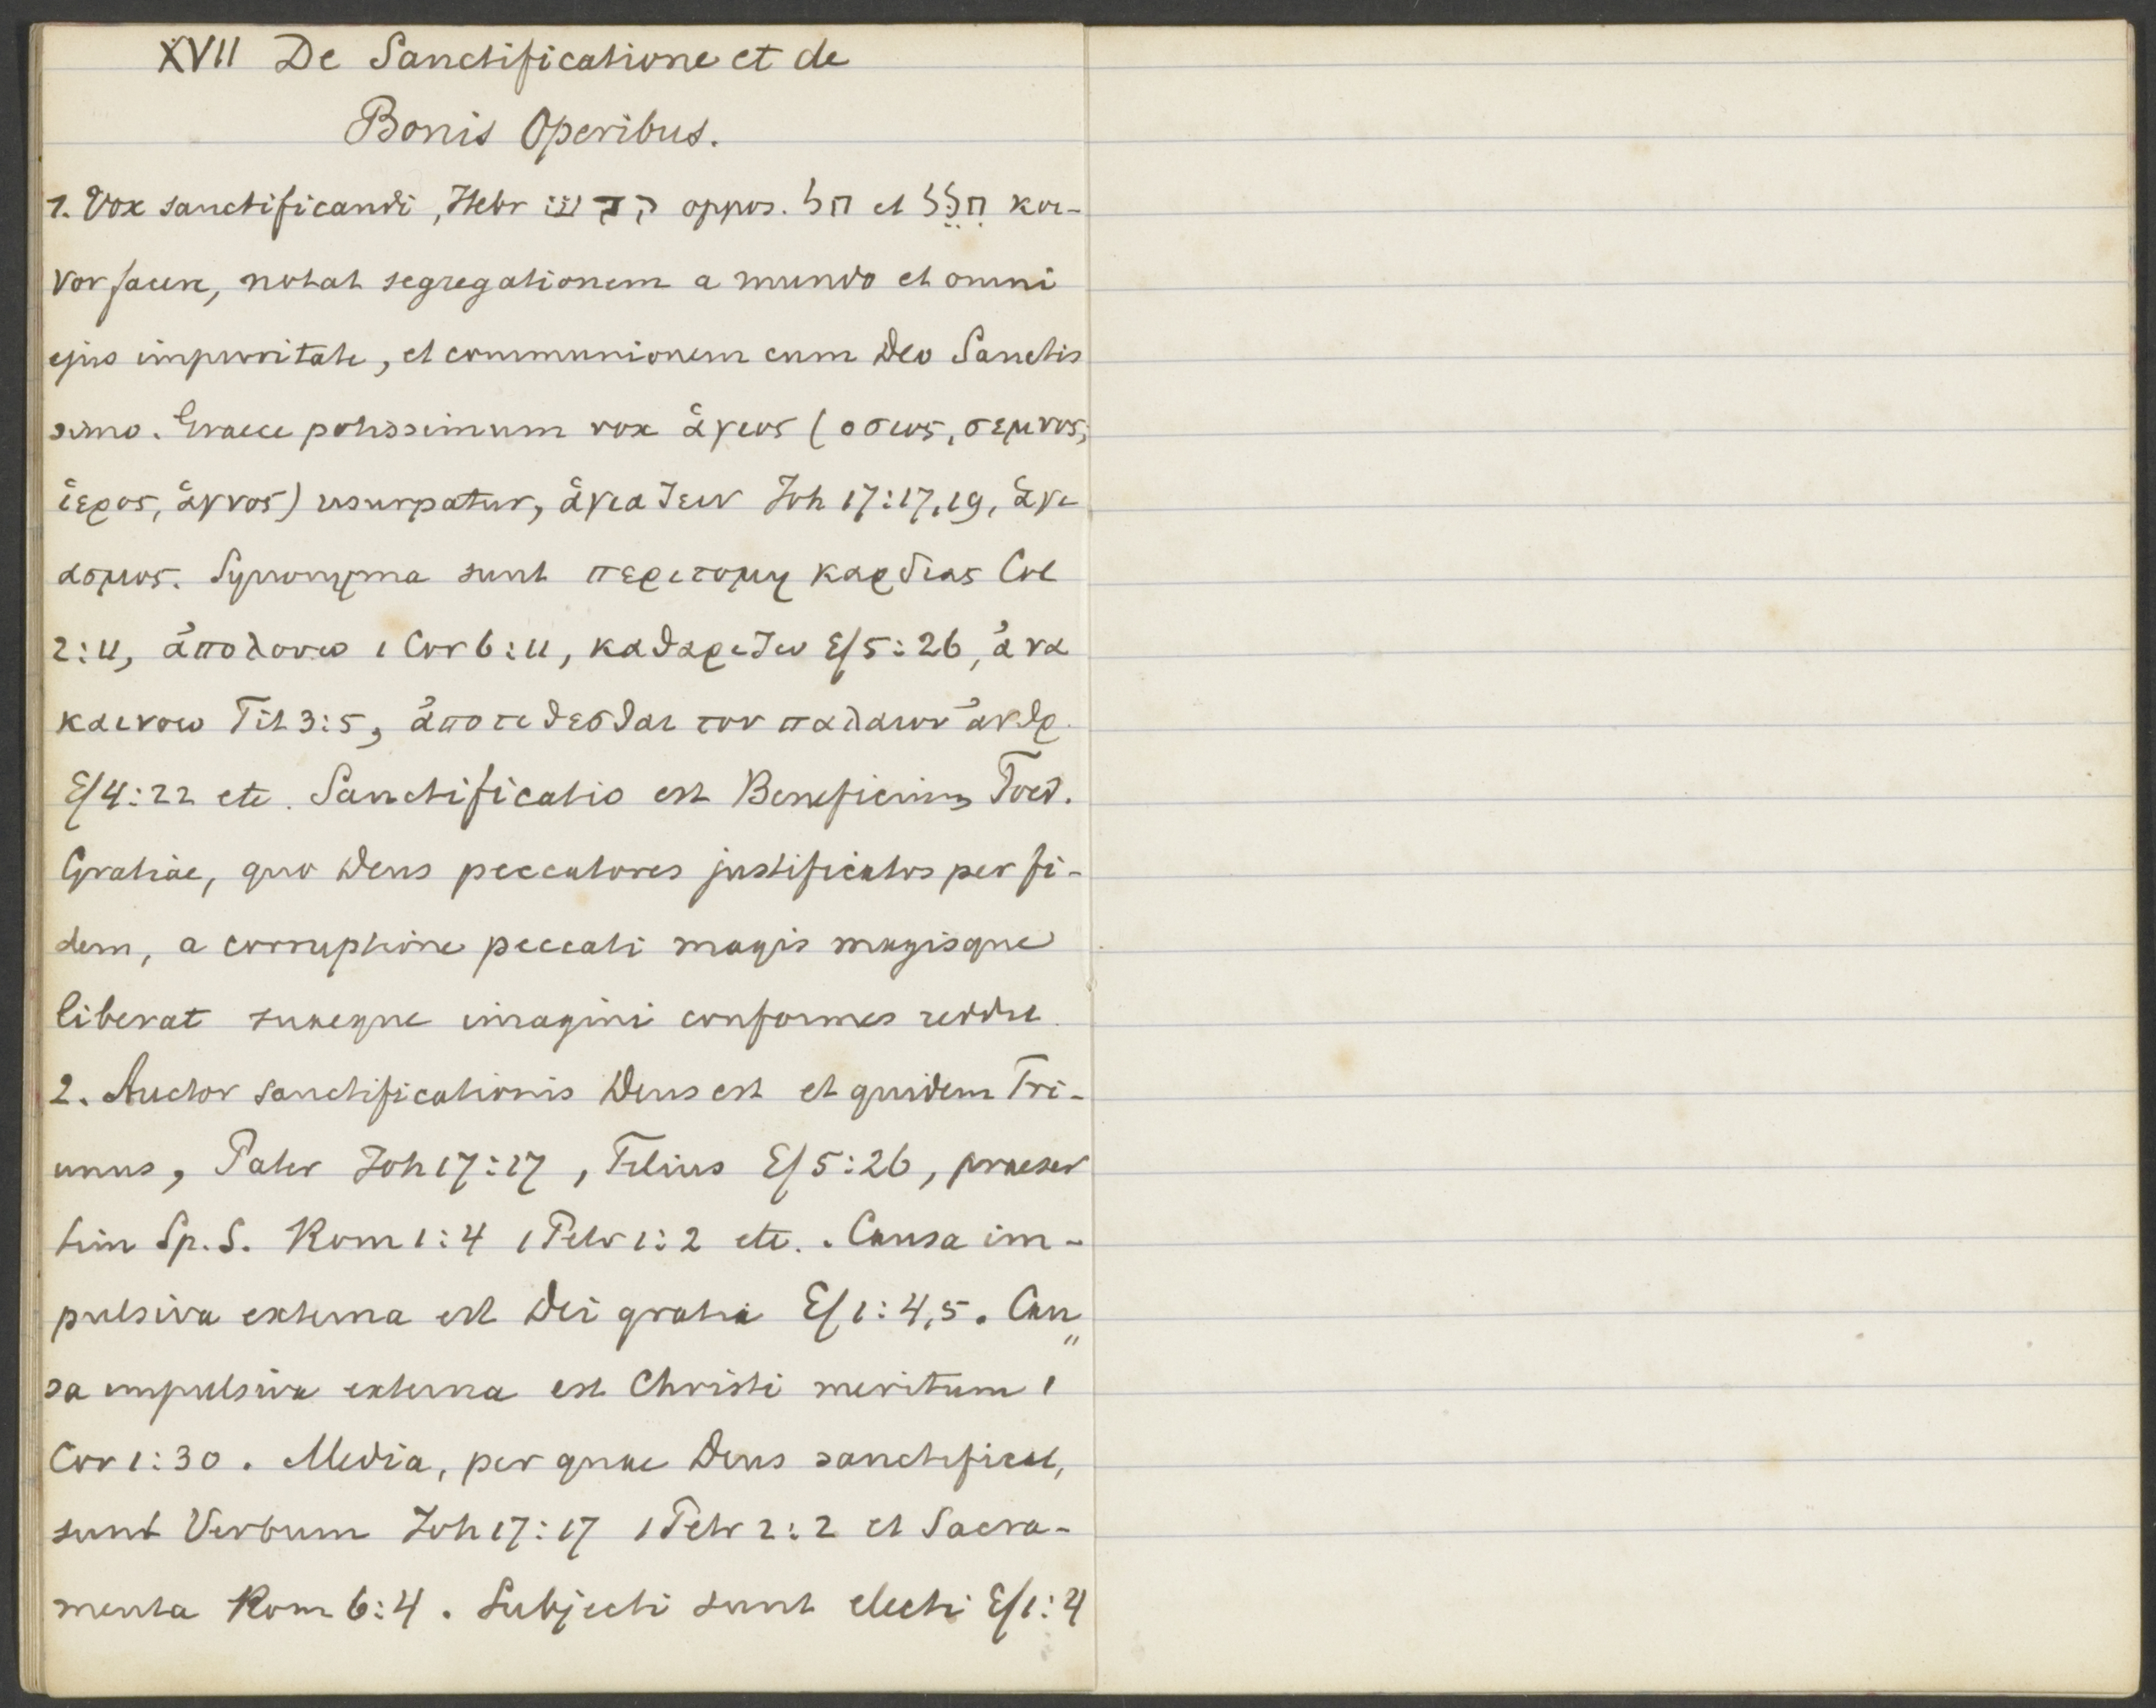 XVII De Sanctificatione et de
Bonis Operibus.
1. Vox sanctificandi, Hebr קדש oppos. חל et חלל κοι-
νον facere, notat segregationem a mundo et omni
ejus impuritate, et communionem cum Deo Sanctis
simo. Graece potissimum vox ἁγιος (οσιος, σεμνος,
ἱερος, ἁγνος) usurpatur, ἁγιαζειν Joh 17:17,19, ἁγι
ασμος. Synonyma sunt περιτομη καρδιας Col
2:11, ἀπολουω 1 Cor 6:11, καθαριζω Ef 5:26, ἀνα
καινοω Tit 3:5, ἀποτιθεσθαι τον παλαιον ἀνθρ.
Ef 4:22 etc. Sanctificatio est Beneficium Foed.
Gratiae, quo Deus peccatores justificatos per fi-
dem, a corruptione peccati magis magisque
liberat suaeque imagini conformes reddit
2. Auctor sanctificationis Deus est et quidem Tri-
unus, Pater Joh 17:17, Filius Ef 5:26, praeser
tim Sp. S. Rom 1:4 1 Petr 1:2 etc.. Causa im-
pulsiva externa est Dei gratia Ef 1:4,5. Cau"
sa impulsiva externa est Christi meritum 1
Cor 1:30. Media, per quae Deus sanctificat,
sunt Verbum Joh 17:17 1 Petr 2:2 et Sacra-
menta Rom 6:4. Subjecti sunt electi Ef 1:4